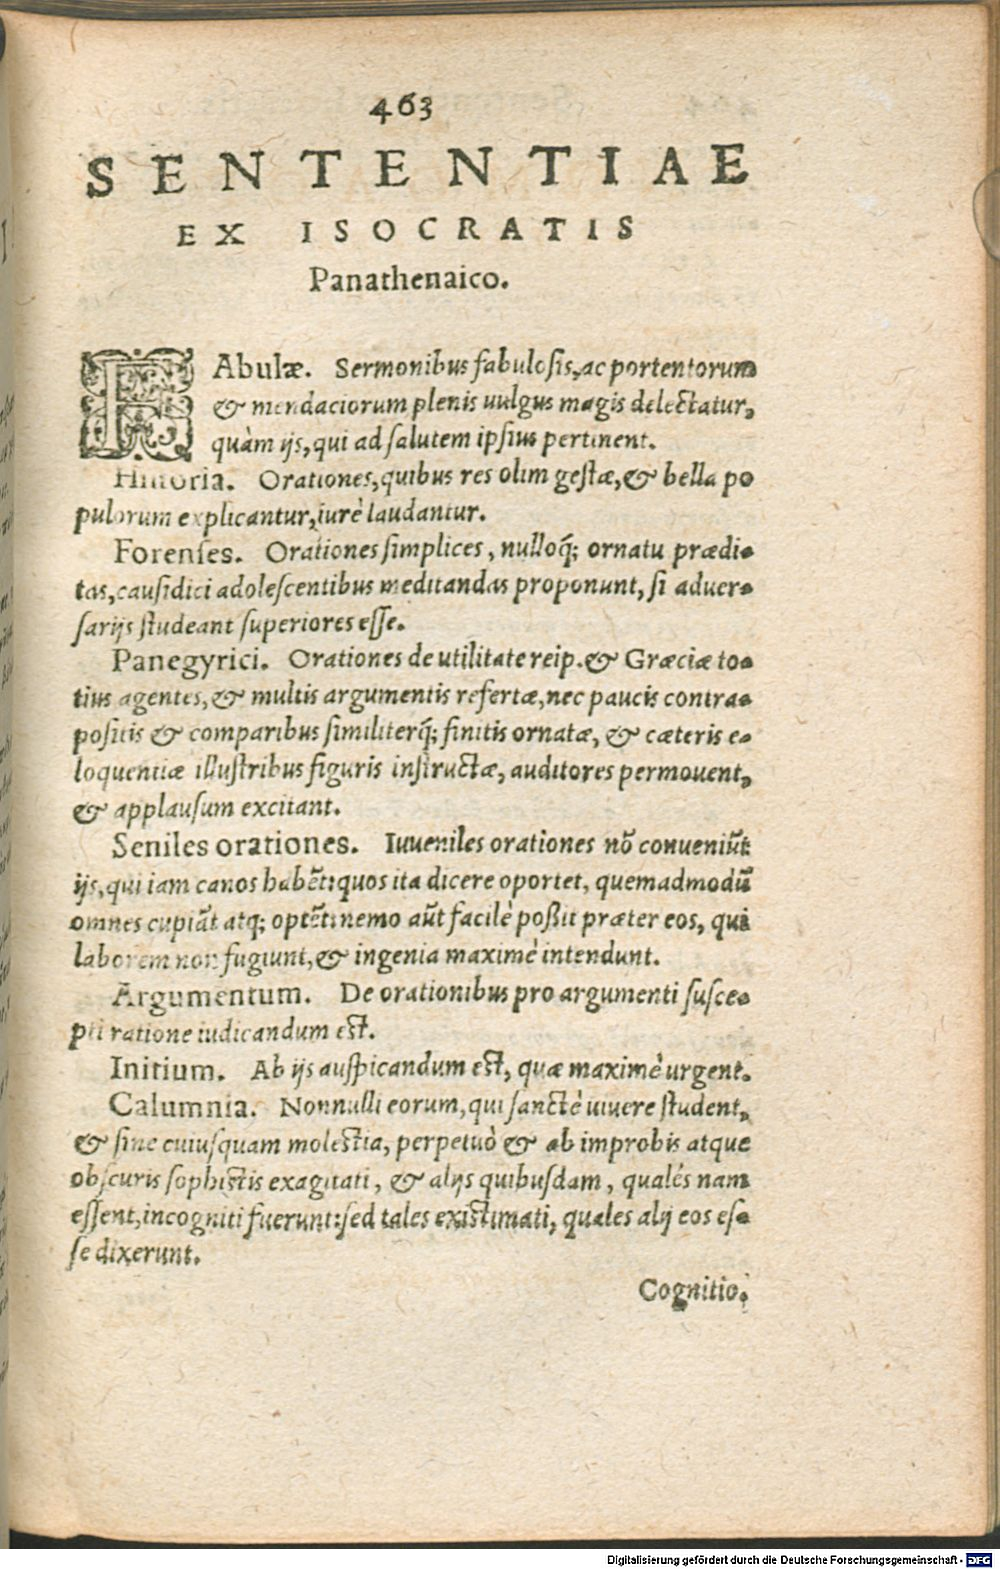 463
SENTENTIAE
EX ISOCRATIS
Panathenaico.
FAbulæ. Sermonibus fabulosis, ac portentorum
& mendaciorum plenis uulgus magis delectatur,
quàm ijs, qui ad salutem ipsius pertinent.
Historia. Orationes, quibus res olim gestæ, & bella po
pulorum explicantur, iurè laudantur.
Forenses. Orationes simplices, nulloq́; ornatu prædi-
tas, causidici adolescentibus meditandas proponunt, si aduer-
sarijs studeant superiores esse.
Panegyrici. Orationes de utilitate reip. & Græciæ to-
tius agentes, & multis argumentis refertæ, nec paucis contra-
positis & comparibus similiterq́; finitis ornatæ, & cæteris e-
loquentiæ illustribus figuris instructæ, auditores permouent,
& applausum excitant.
Seniles orationes. Iuueniles orationes nõ conueniũt
ijs, qui iam canos habẽt: quos ita dicere oportet, quemadmodũ
omnes cupiãt atq; optẽt: nemo aũt facilè poßit præter eos, qui
laborem non fugiunt, & ingenia maximè intendunt.
Argumentum. De orationibus pro argumenti susce-
pti ratione iudicandum est.
Initium. Ab ijs auspicandum est, quæ maximè urgent.
Calumnia. Nonnulli eorum, qui sanctè uiuere student,
& sine cuiusquam molestia, perpetuò & ab improbis atque
obscuris sophistis exagitati, & alijs quibusdam, qualés nam
essent, incogniti fuerunt: sed tales existimati, quales alij eos es-
se dixerunt.
Cognitio.
Digitalisierung gefördert durch die Deutsche Forschungsgemeinschaft - DFG